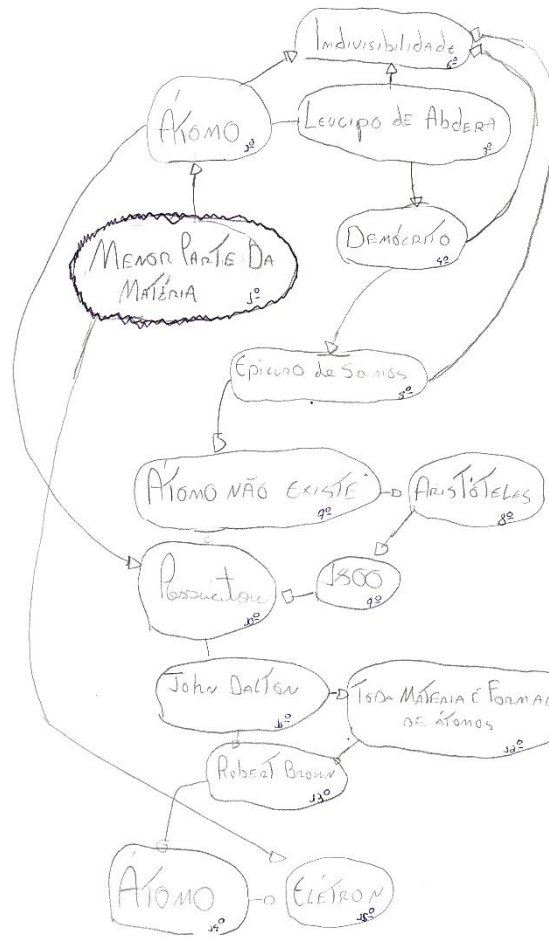 Indivisibilidade
6º
Átomo
2º
Leucipo de Abdera
3º
Demócrito
4º
Menor Parte Da
Matéria
1º
Epicuro de Somos
5º
Átomo não existe
7º
Aristóteles
8º
1800
9º
10º
John Dalton
11º
Toda Matéria é Formad
de átomos
12º
Robert Brown
13º
Átomo
14º
Elétron
15º